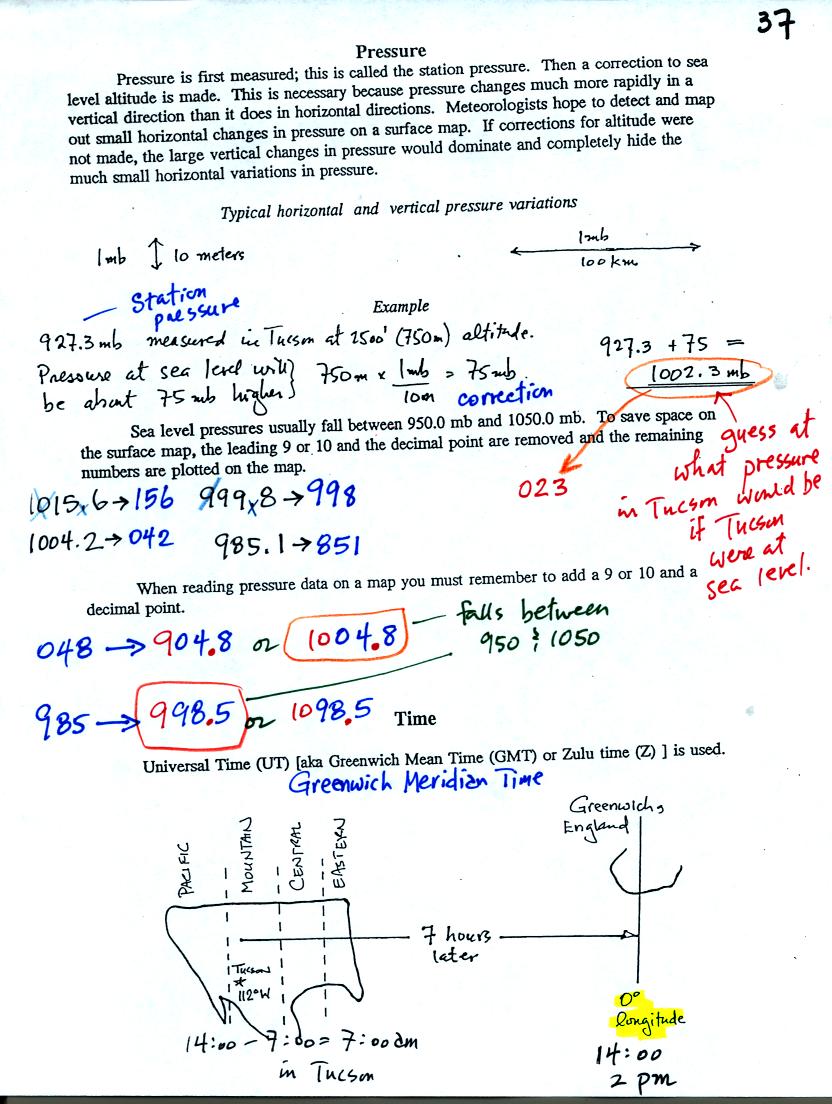 37
Pressure
Pressure is first measured; this is called the station pressure. Then a correction to sea
level altitude is made. This is necessary because pressure changes much more rapidly in a
vertical direction than it does in horizontal directions. Meteorologists hope to detect and map
out small horizontal changes in pressure on a surface map. If corrections for altitude were
not made, the large vertical changes in pressure would dominate and completely hide the
much small horizontal variations in pressure.
Typical horizontal and vertical pressure variations
1mb ↕ 10 meters
1mb
100 km
Station
pressure
Example
927.3 mb measured in Tucson at 2500' (750m) altitude.
Pressure at sea level will
be about 75 mb higher
750m x 1mb = 75mb
10m
correction
927.3 + 75 =
1002.3 mb
Sea level pressures usually fall between 950.0 mb and 1050.0 mb. To save space on
the surface map, the leading 9 or 10 and the decimal point are removed and the remaining
numbers are plotted on the map.
023
guess at
what pressure
in Tucson would be
if Tucson
were at
sea level.
1015.6 → 156 999.8 → 998
1004.2 → 042 985.1 → 851
When reading pressure data on a map you must remember to add a 9 or 10 and a
decimal point.
048 → 904.8 or 1004.8
falls between
950 & 1050
985 → 998.5 or 1098.5
Time
Universal Time (UT) [aka Greenwich Mean Time (GMT) or Zulu time (Z) ] is used.
Greenwich Meridian Time
PACIFIC
MOUNTAIN
CENTRAL
EASTERN
Greenwich,
England
7 hours
later
Tucson
*
112°W
0°
longitude
14:00 - 7:00 = 7:00 am
in Tucson
14:00
2 pm